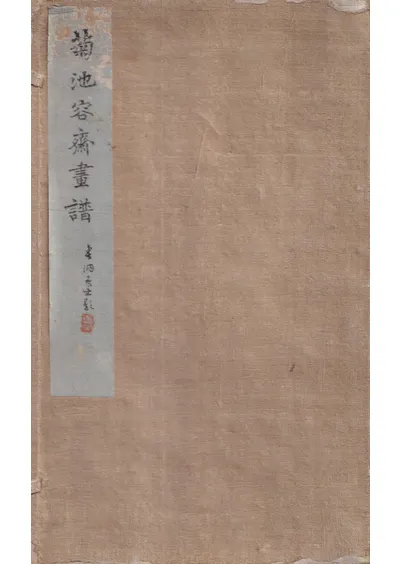 菊池容齋畫譜